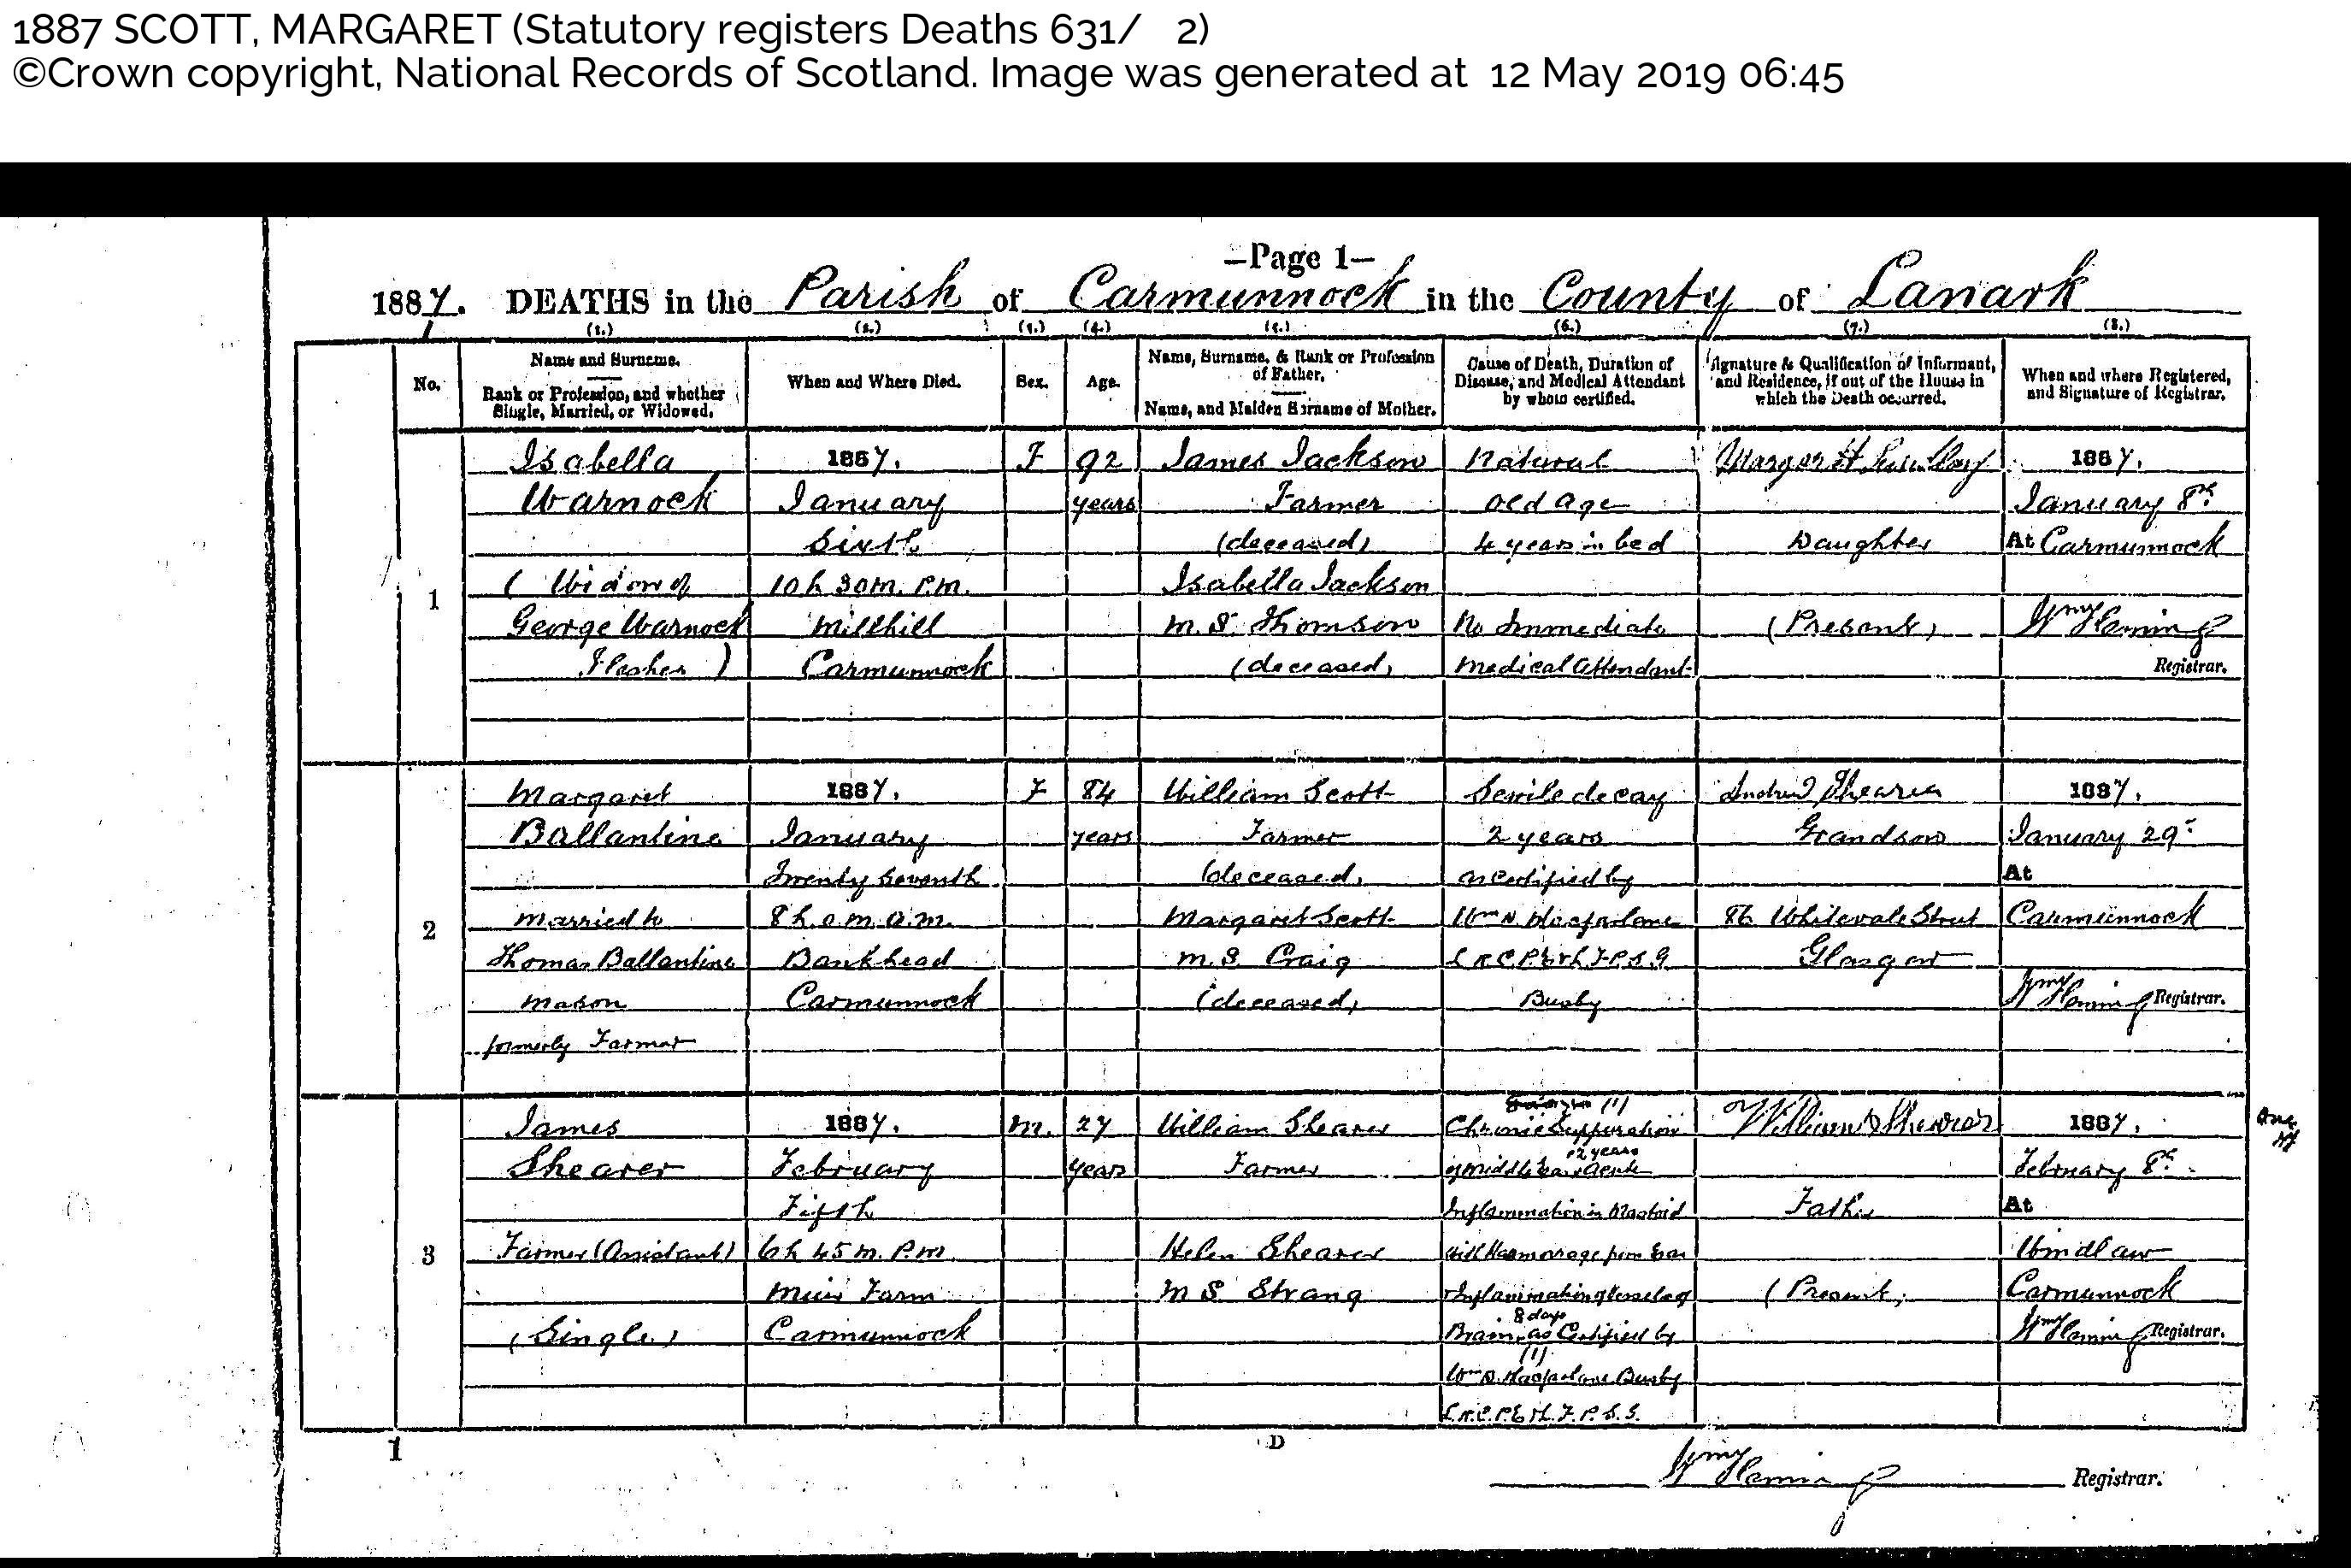 1887 SCOTT, MARGARET (Statutory registers Deaths 631/ 2)
©Crown copyright, National Records of Scotland. Image was generated at 12 May 2019 06:45
—Page 1—
1887. DEATHS in the Parish of Carmunnock in the County of Lanark
(1.) (2.) (3.) (4.) (5.) (6.) (7.) (8.)
No.
Name and Surname.
Rank or Profession, and whether
Single, Married, or Widowed.
When and Where Died.
Sex.
Age.
Name, Surname, & Rank or Profession
of Father.
Name, and Maiden Surname of Mother.
Cause of Death, Duration of
Disease, and Medical Attendant
by whom certified.
Signature & Qualification of Informant,
and Residence, if out of the House in
which the Death occurred.
When and where Registered,
and Signature of Registrar.
1
Isabella
Warnock
(Widow of
George Warnock
Flesher)
1887.
January
Sixth
10 h 30 m. P.M.
Millhill
Carmunnock
F
92
years
James Jackson
Farmer
(deceased)
Isabella Jackson
m. S. Thomson
(deceased)
Natural
old age
4 years in bed
No Immediate
medical attendant
Margaret
Daughter
(Present)
1887.
January 8th
At Carmunnock
Wm Fleming
Registrar.
2
Margaret
Ballantine
married to
Thomas Ballantine
mason
formerly Farmer
1887.
January
Twenty seventh
8 h. 0 m. a.m.
Bankhead
Carmunnock
F
84
years
William Scott
Farmer
(deceased)
Margaret Scott
m. S. Craig
(deceased)
Senile decay
2 years
as certified by
Wm N. Macfarlane
L.R.C.P.E & L.F.P.S.G.
Busby
Andrew Shearer
Grandson
86 Whitevale Street
Glasgow
1887.
January 29th
At
Carmunnock
Wm Fleming Registrar.
3
James
Shearer
Farmer (Assistant)
(Single)
1887.
February
Fifth
6 h 45 m. P.m
Muir Farm
Carmunnock
M.
27
years
William Shearer
Farmer
Helen Shearer
M S Strang
(1)
Chronic Suppuration
2 years
of middle Ear & acute
Inflammation in Mastoid
with Haemorrage from Ear
& Inflammation of vessels of
8 days
Brain, as Certified by
(1)
Wm N. Macfarlane Busby
L.R.C.P.E & L.F.P.S.G.
William Shearer
Father
(Present)
1887.
February 8th
At
Windlaw
Carmunnock
Wm Fleming Registrar.
1
D
Wm Fleming Registrar.